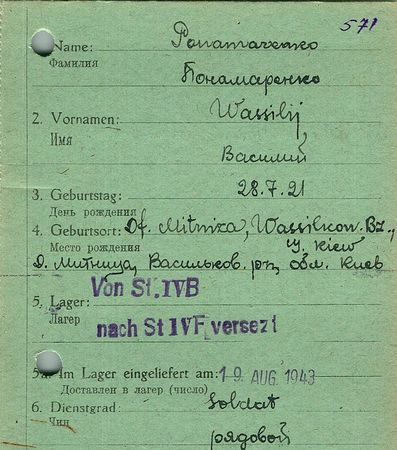 571
Name: Ponamarenko
Фамилия
Понамаренко
2. Vornamen: Wassilij
Имя
Василий
3. Geburtstag: 28.7.21
День рождения
4. Geburtsort: Df. Mitniza, Wassilkow. Bz.,
Место рождения G. Kiew
д. Митница, Васильков. р-н, обл. Киев
5. Lager: Von St. IVB
Лагер
nach St IVF versezt
5a. Im Lager eingeliefert am: 19. AUG. 1943
Доставлен в лагер (число)
6. Dienstgrad: Soldat
Чин
рядовой